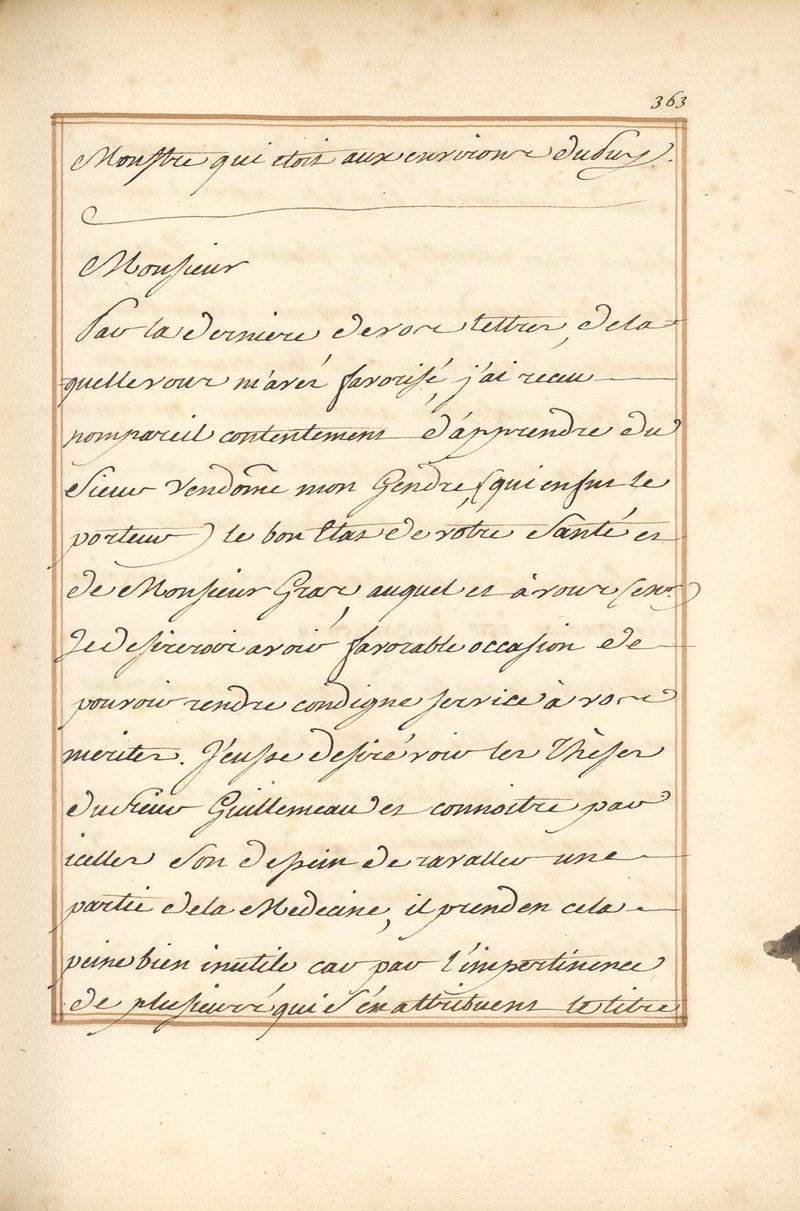 363
Monstre qui etois aux environs du Puy.
Monsieur
Par la derniere de vos lettres, de la-
quelle vous m'avés favorisé, j'ai receu
nompareil contentement d'apprendre du
Sieur Vendôme mon Gendre, (qui en fut le
porteur) le bon Etat de vôtre Santé et
de Monsieur Gras, auquel et à vous
Je desirerois avoir favorable occasion de
pouvoir rendre condigne service à vos
merites. J'eusse desiré voir les Thèses
du Sieur Guillemeau et connoitre par
icelles son dessein de ravaller une
partie de la Medecine, il prend en cela
peine bien inutile car par l'impertinence
de plusieurs qui s'en attribuent le titre